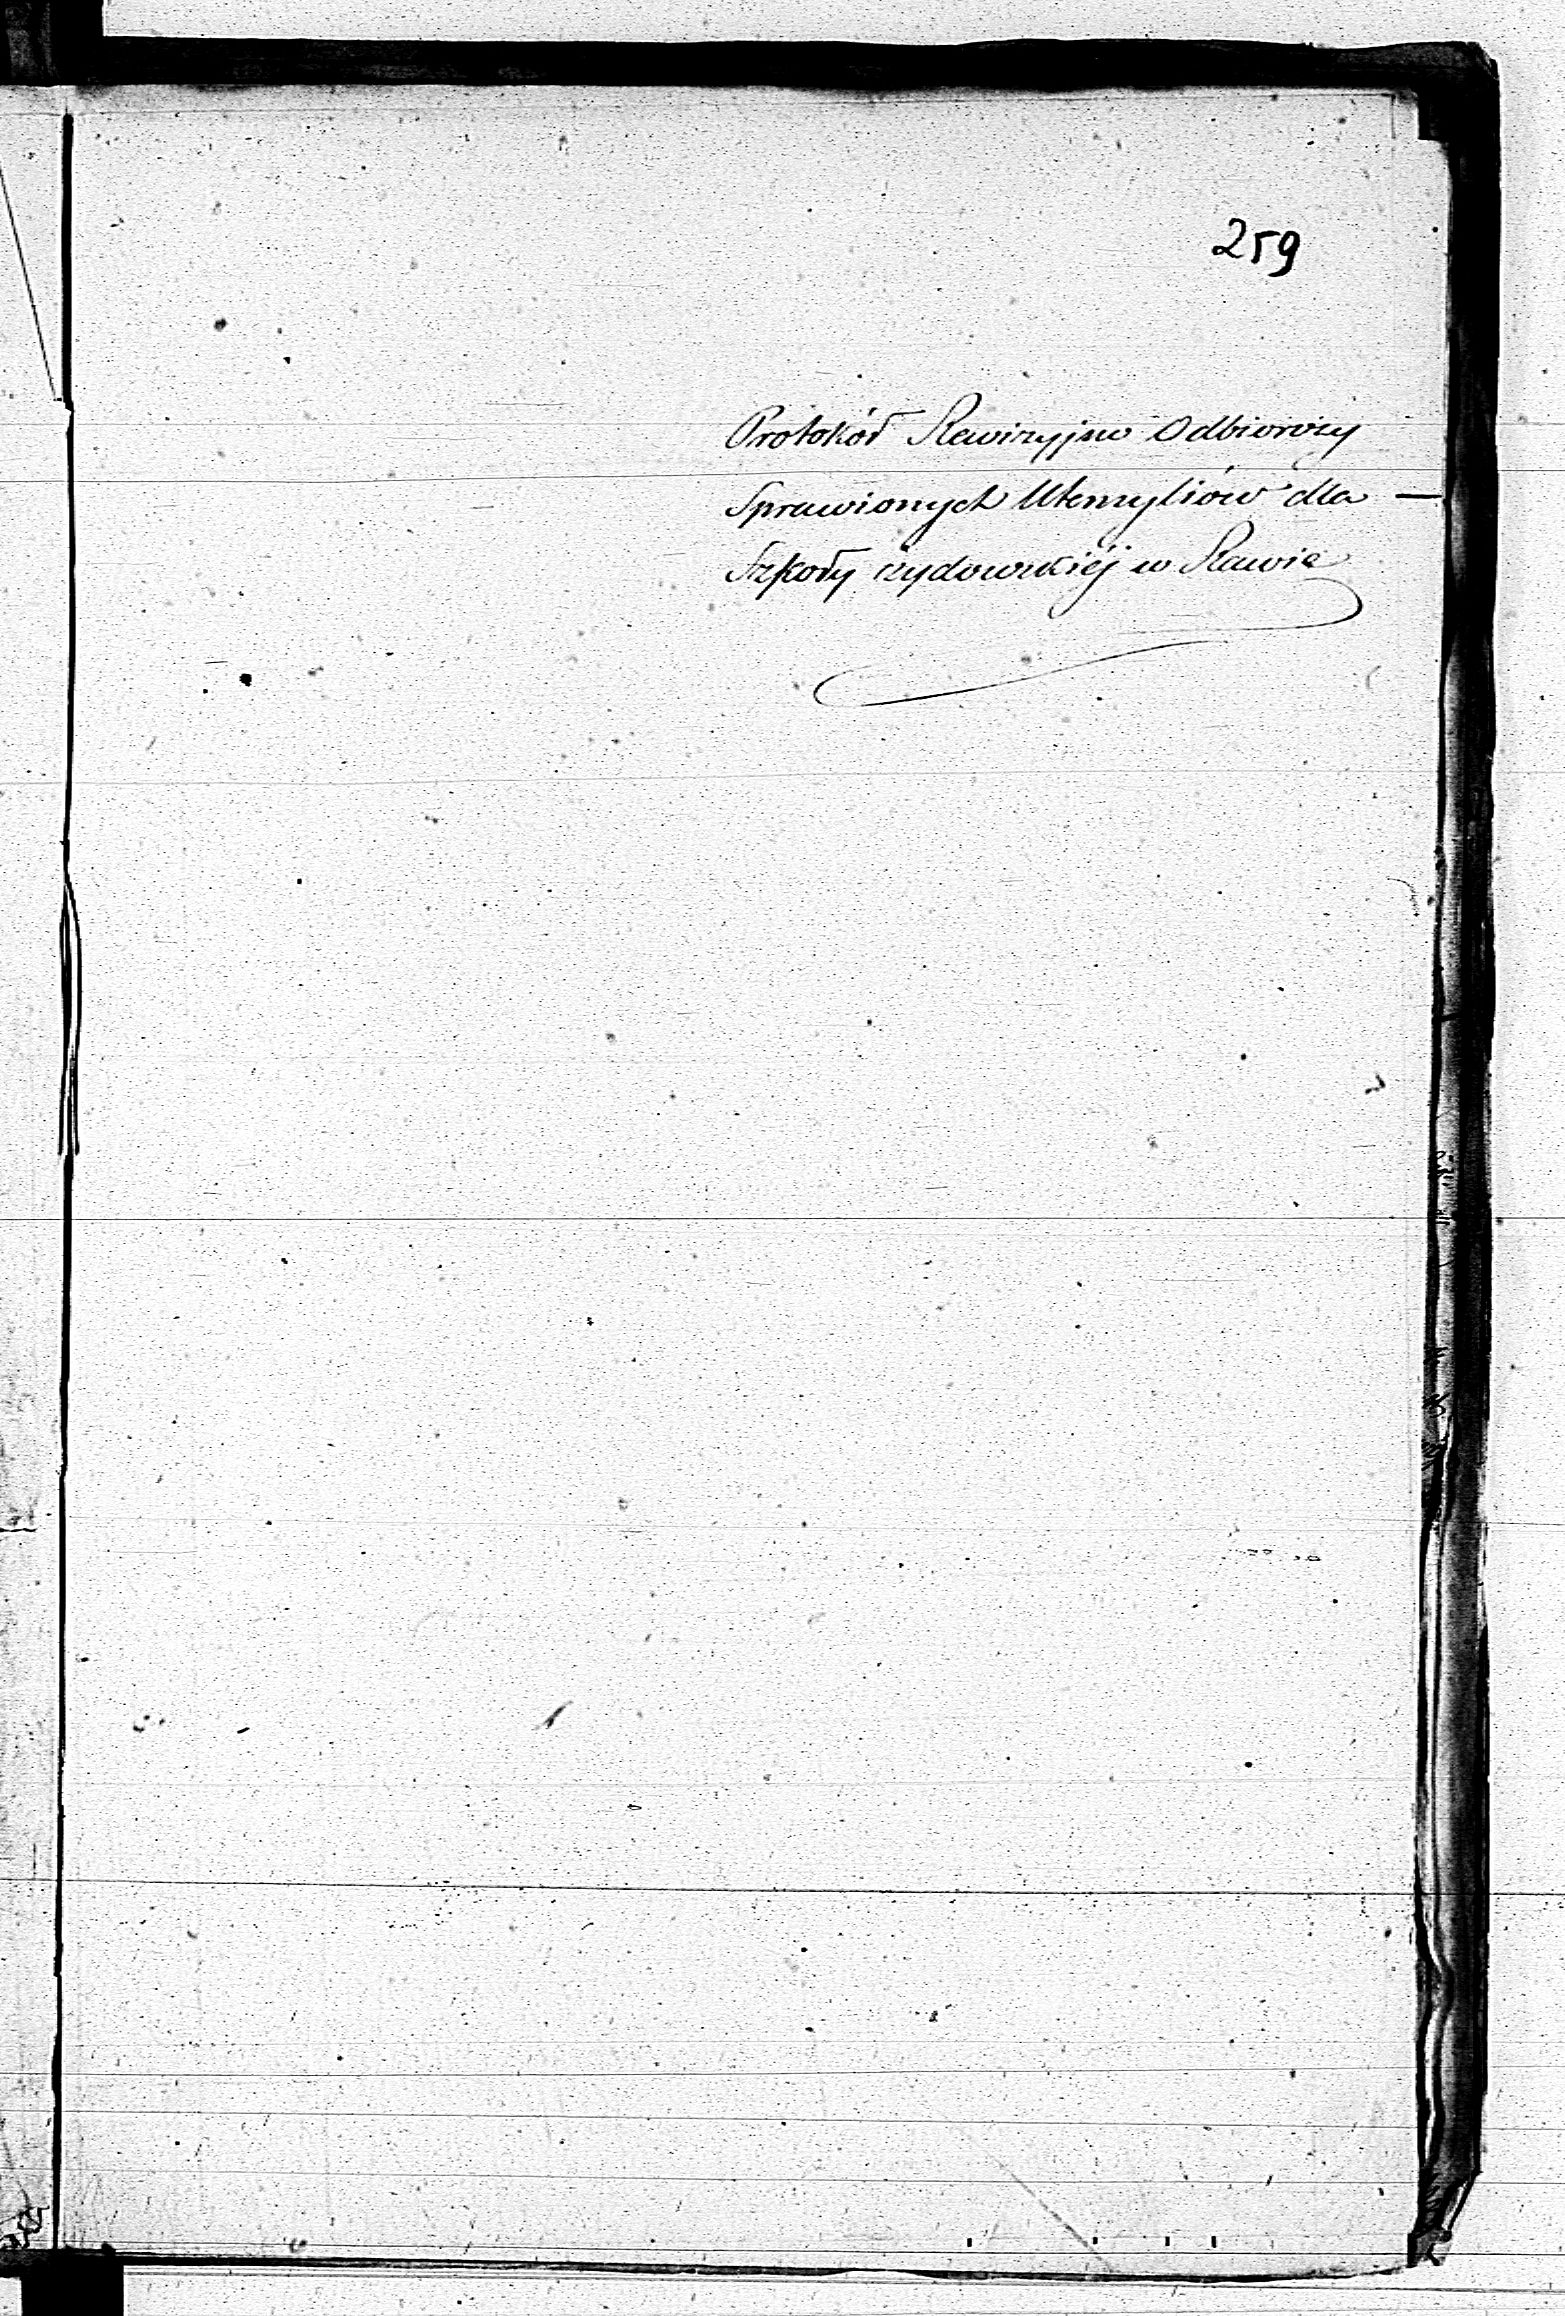 259
Protokół Rewizyjno Odbiorczy
Sprawionych Utensyliów dla —
Szkoły żydowskiéj w Rawie